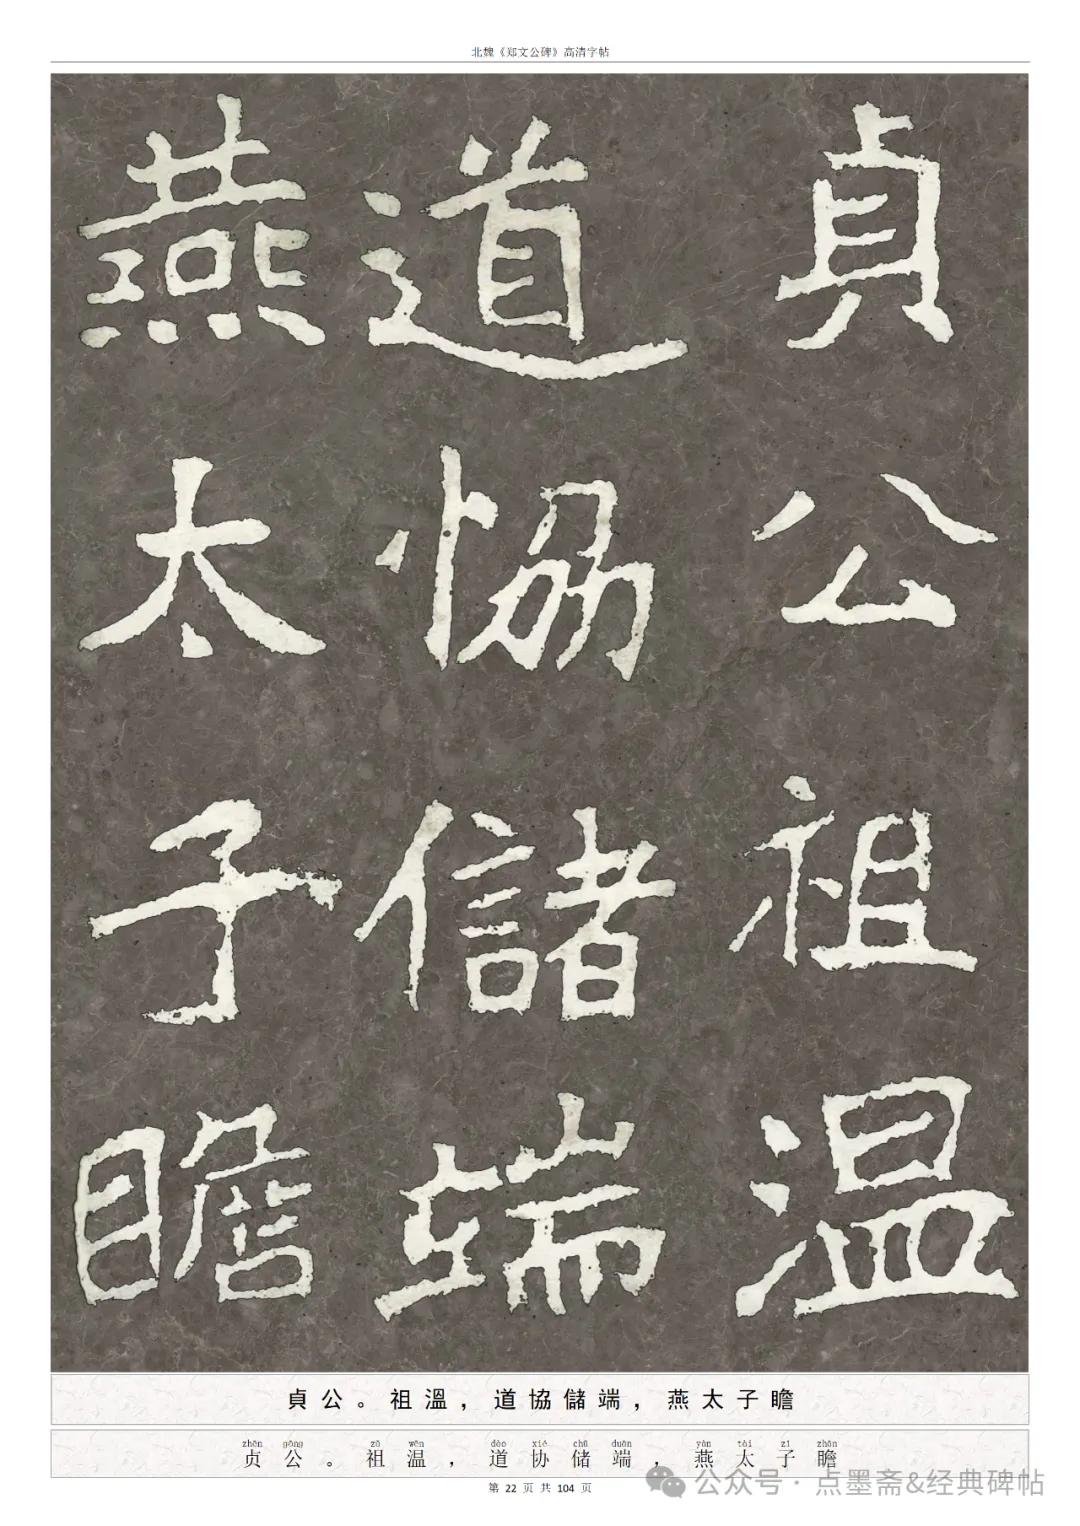 北魏《郑文公碑》高清字帖
貞公祖溫
道協儲端
燕太子瞻
貞公。祖溫，道協儲端，燕太子瞻
zhēn gōng zǔ wēn dào xié chǔ duān yān tài zǐ zhān
贞公。祖温，道协储端，燕太子瞻
第 22 页 共 104 页
公众号·点墨斋&经典碑帖